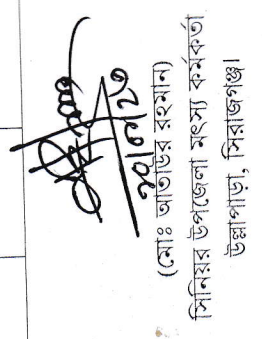 ২০/৭/২৩
(মোঃ আতাউর রহমান)
সিনিয়র উপজেলা মৎস্য কর্মকর্তা
উল্লাপাড়া, সিরাজগঞ্জ।